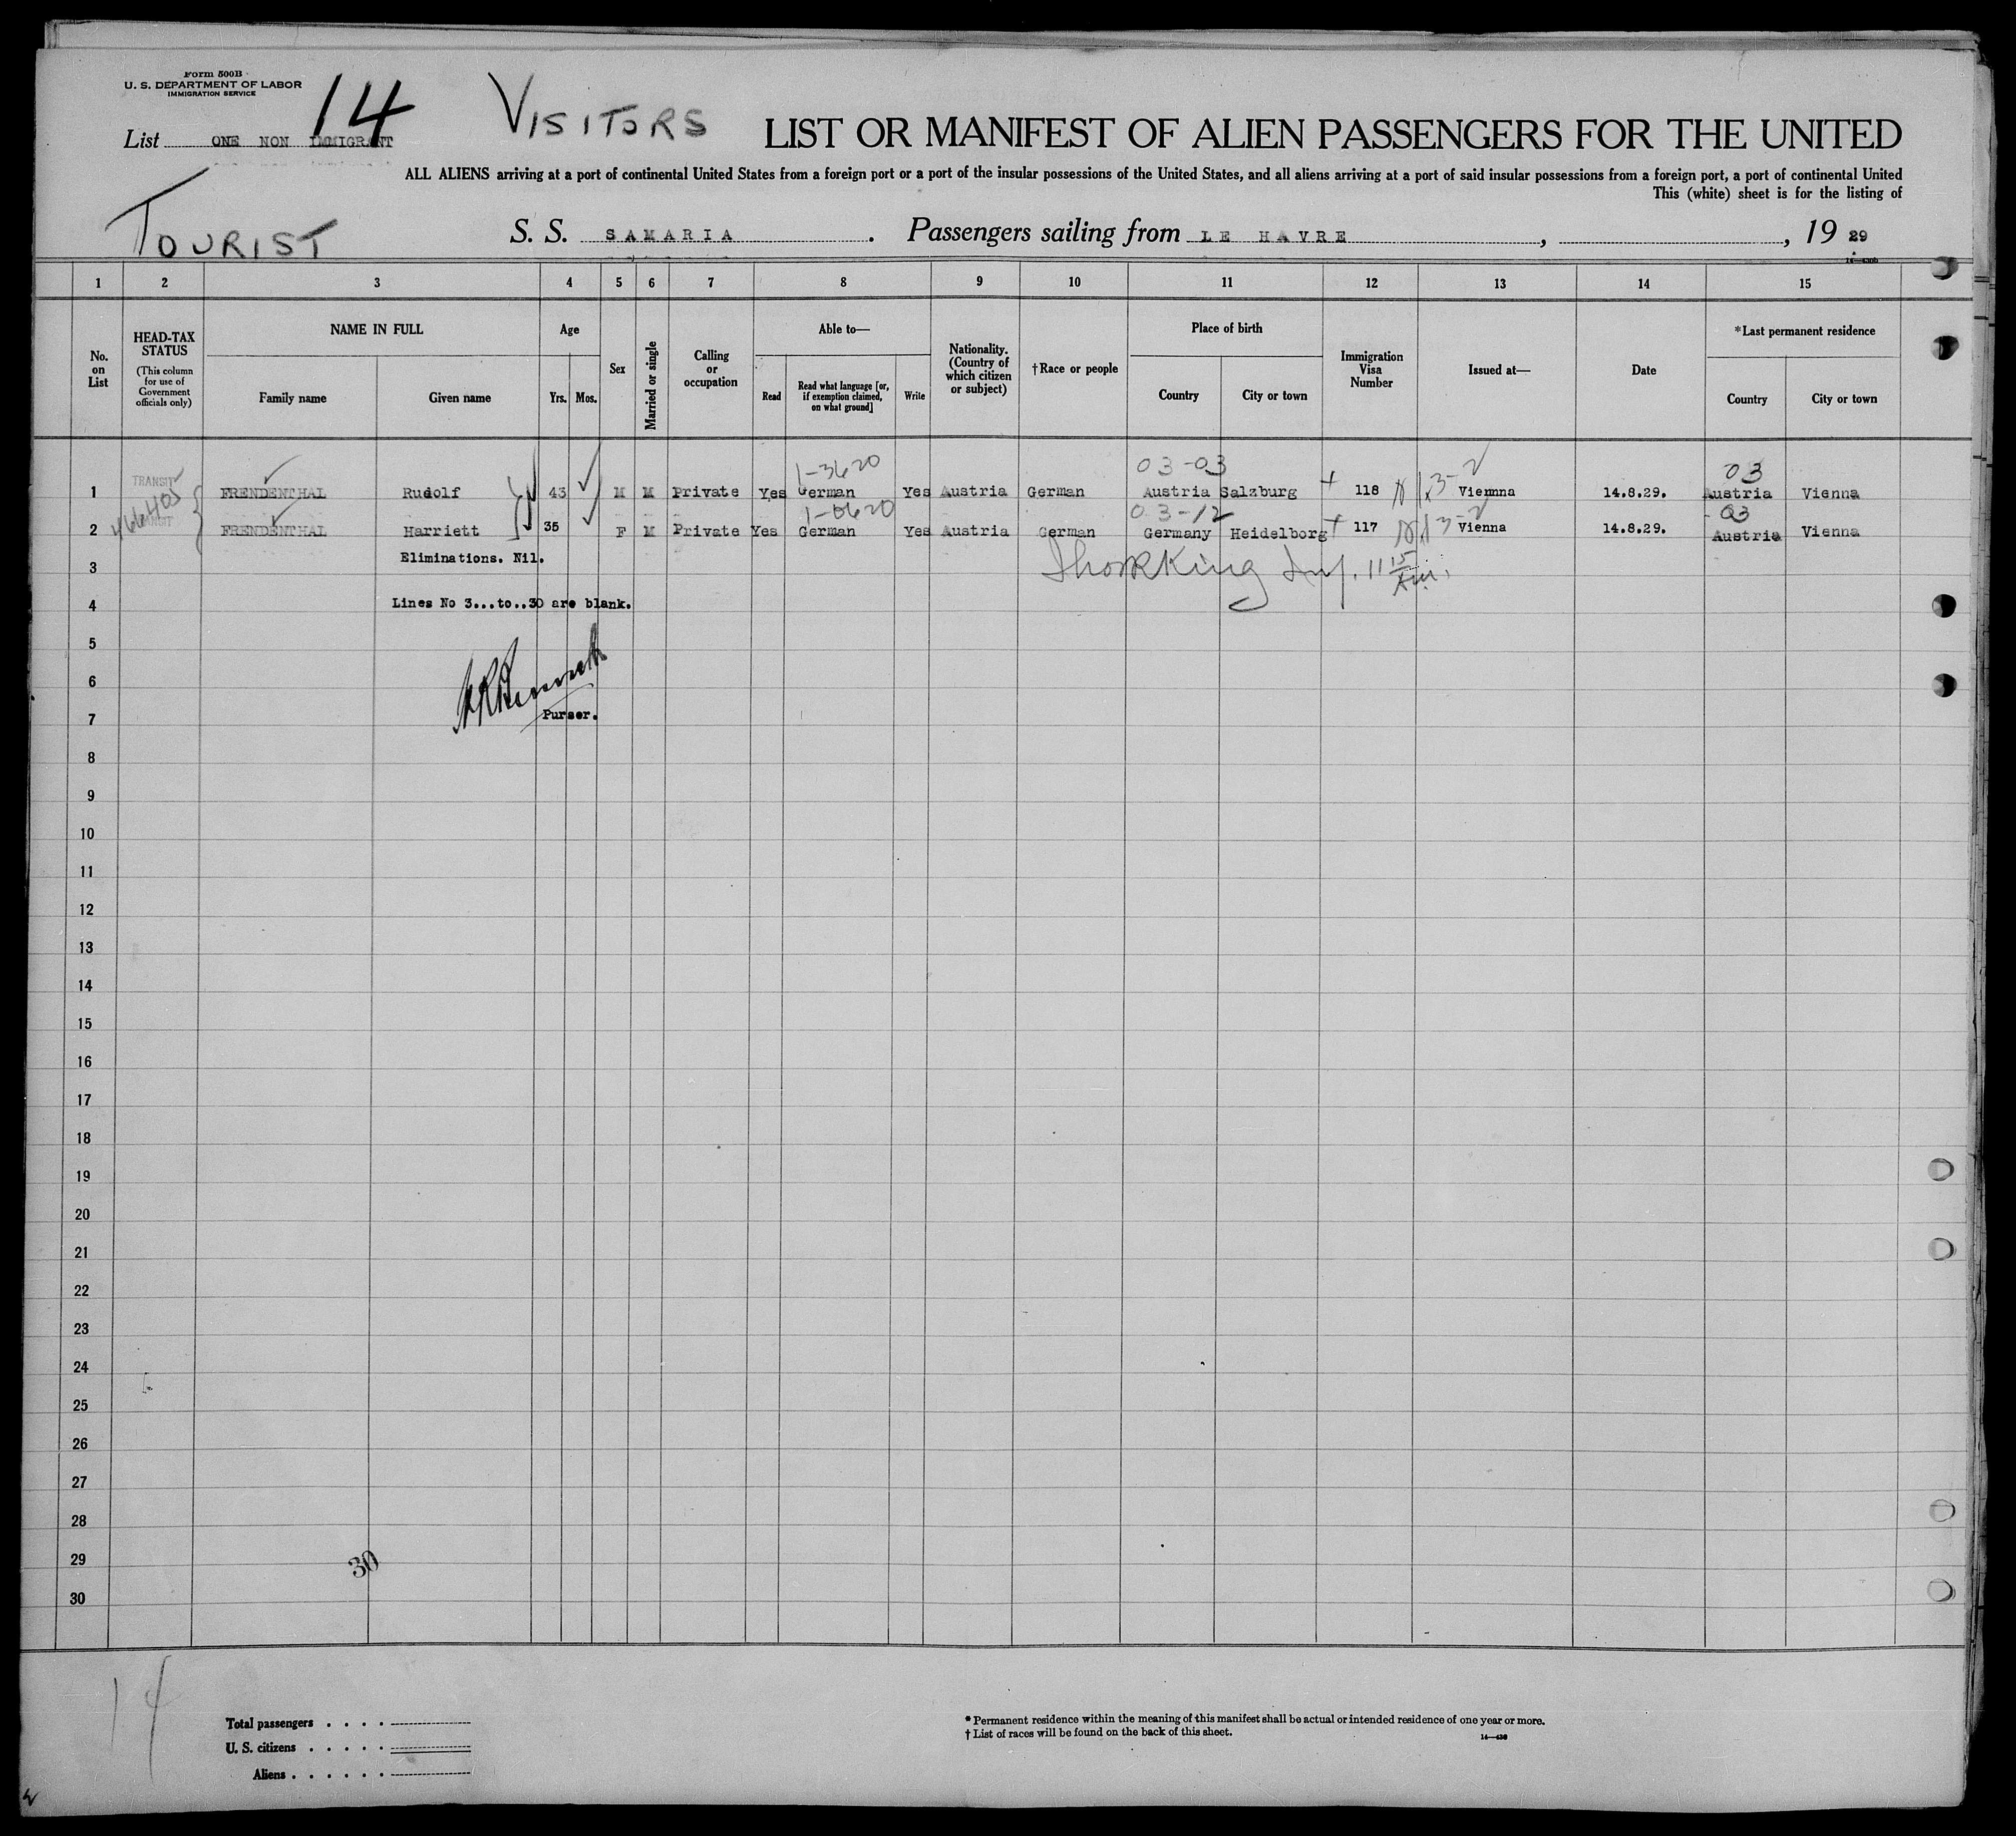 Form 500B
U. S. DEPARTMENT OF LABOR
IMMIGRATION SERVICE
14
VISITORS
List ONE NON IMMIGRANT
LIST OR MANIFEST OF ALIEN PASSENGERS FOR THE UNITED
ALL ALIENS arriving at a port of continental United States from a foreign port or a port of the insular possessions of the United States, and all aliens arriving at a port of said insular possessions from a foreign port, a port of continental United
This (white) sheet is for the listing of
TOURIST
S. S. SAMARIA. Passengers sailing from LE HAVRE, , 19 29
1 2 3 4 5 6 7 8 9 10 11 12 13 14 15
No. on List
HEAD-TAX STATUS
(This column for use of Government officials only)
NAME IN FULL
Family name Given name
Age
Yrs. Mos.
Sex
Married or single
Calling or occupation
Able to—
Read
Read what language [or, if exemption claimed, on what ground]
Write
Nationality. (Country of which citizen or subject)
†Race or people
Place of birth
Country City or town
Immigration Visa Number
Issued at—
Date
*Last permanent residence
Country City or town
1-3620 03-03 03
1 TRANSIT FRENDENTHAL Rudolf 43 M M Private Yes German Yes Austria German Austria Salzburg 118 Viemna 14.8.29. Austria Vienna
466405
1-0620 03-12 03
2 TRANSIT FRENDENTHAL Harriett 35 F M Private Yes German Yes Austria German Germany Heidelborg 117 Vienna 14.8.29. Austria Vienna
3 Eliminations. Nil.
4 Lines No 3...to..30 are blank.
5
6
7 Purser.
8
9
10
11
12
13
14
15
16
17
18
19
20
21
22
23
24
25
26
27
28
29 30
30
14
Total passengers . . . .
U. S. citizens . . . . .
Aliens . . . . . .
* Permanent residence within the meaning of this manifest shall be actual or intended residence of one year or more.
† List of races will be found on the back of this sheet.